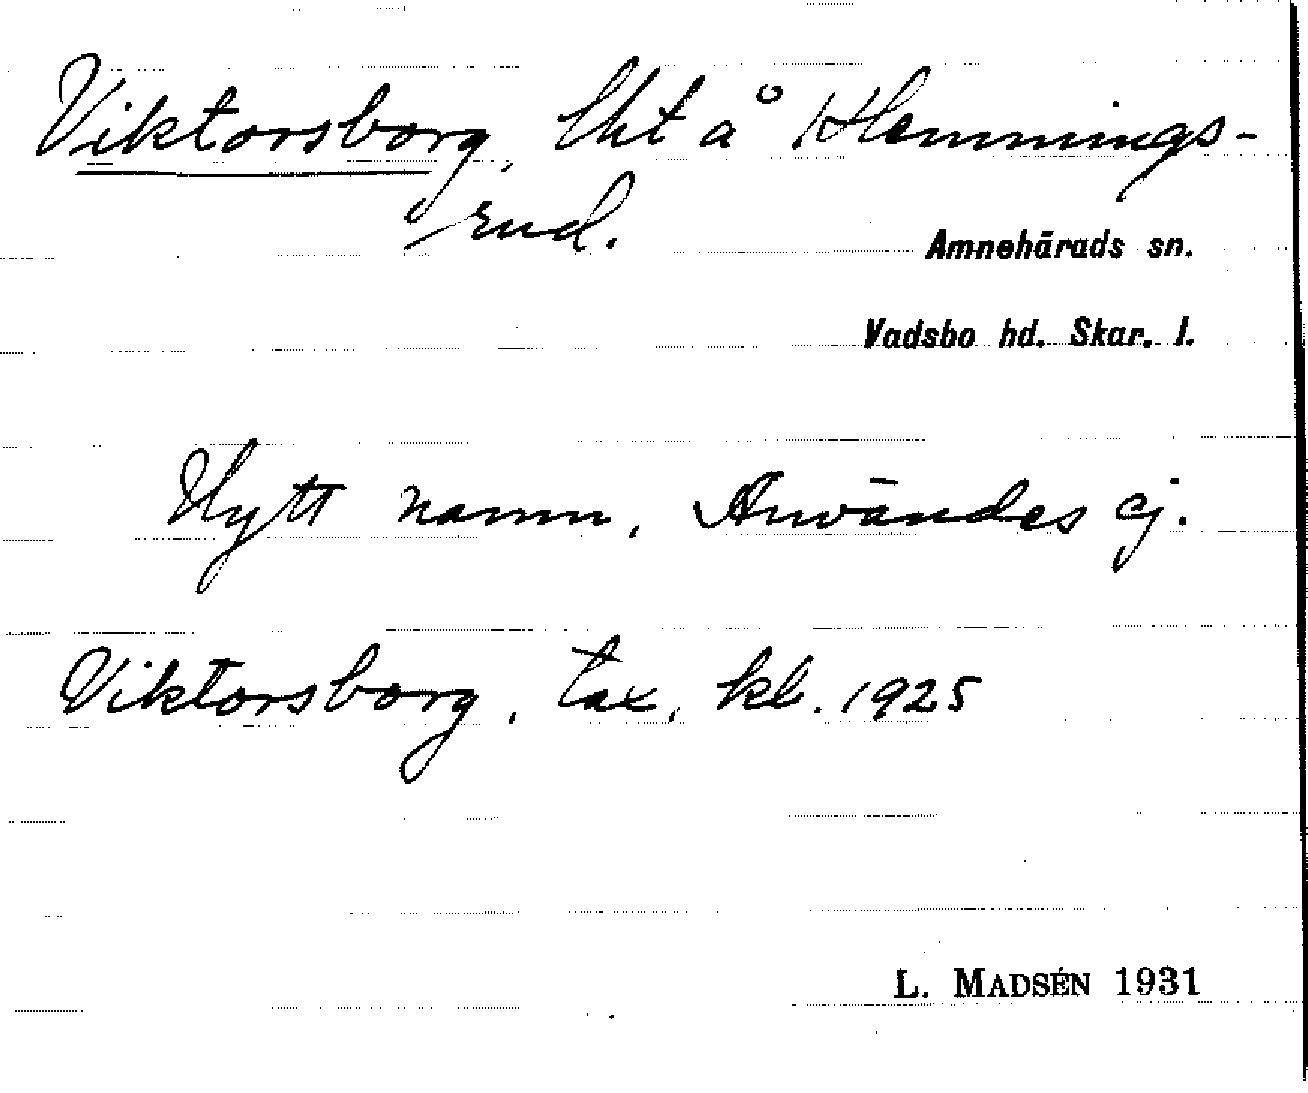 Viktorsborg, lht å Hemmings-
rud.
Amnehärads sn.
Vadsbo hd. Skar. l.
Nytt namn. Användes ej.
Viktorsborg, tax. kl. 1925
L. MADSÉN 1931